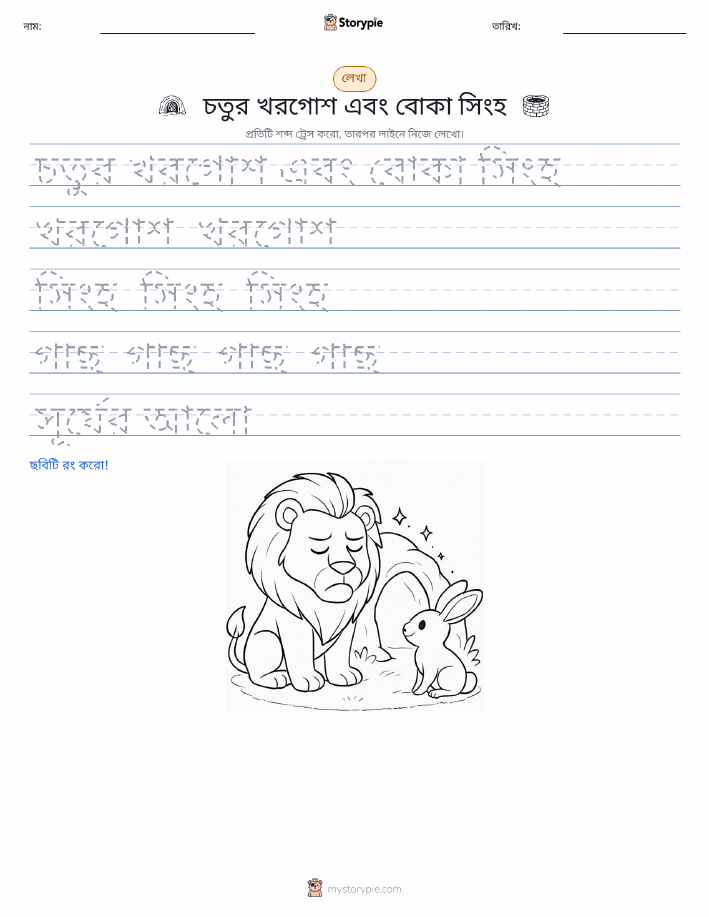 নাম:
Storypie
তারিখ:
লেখা
চতুর খরগোশ এবং বোকা সিংহ
প্রতিটি শব্দ ট্রেস করো, তারপর লাইনে নিজে লেখো।
চতুর খরগোশ এবং বোকা সিংহ
খরগোশ খরগোশ
সিংহ সিংহ সিংহ
গাছ গাছ গাছ গাছ
সূর্যের আলো
ছবিটি রং করো!
mystorypie.com